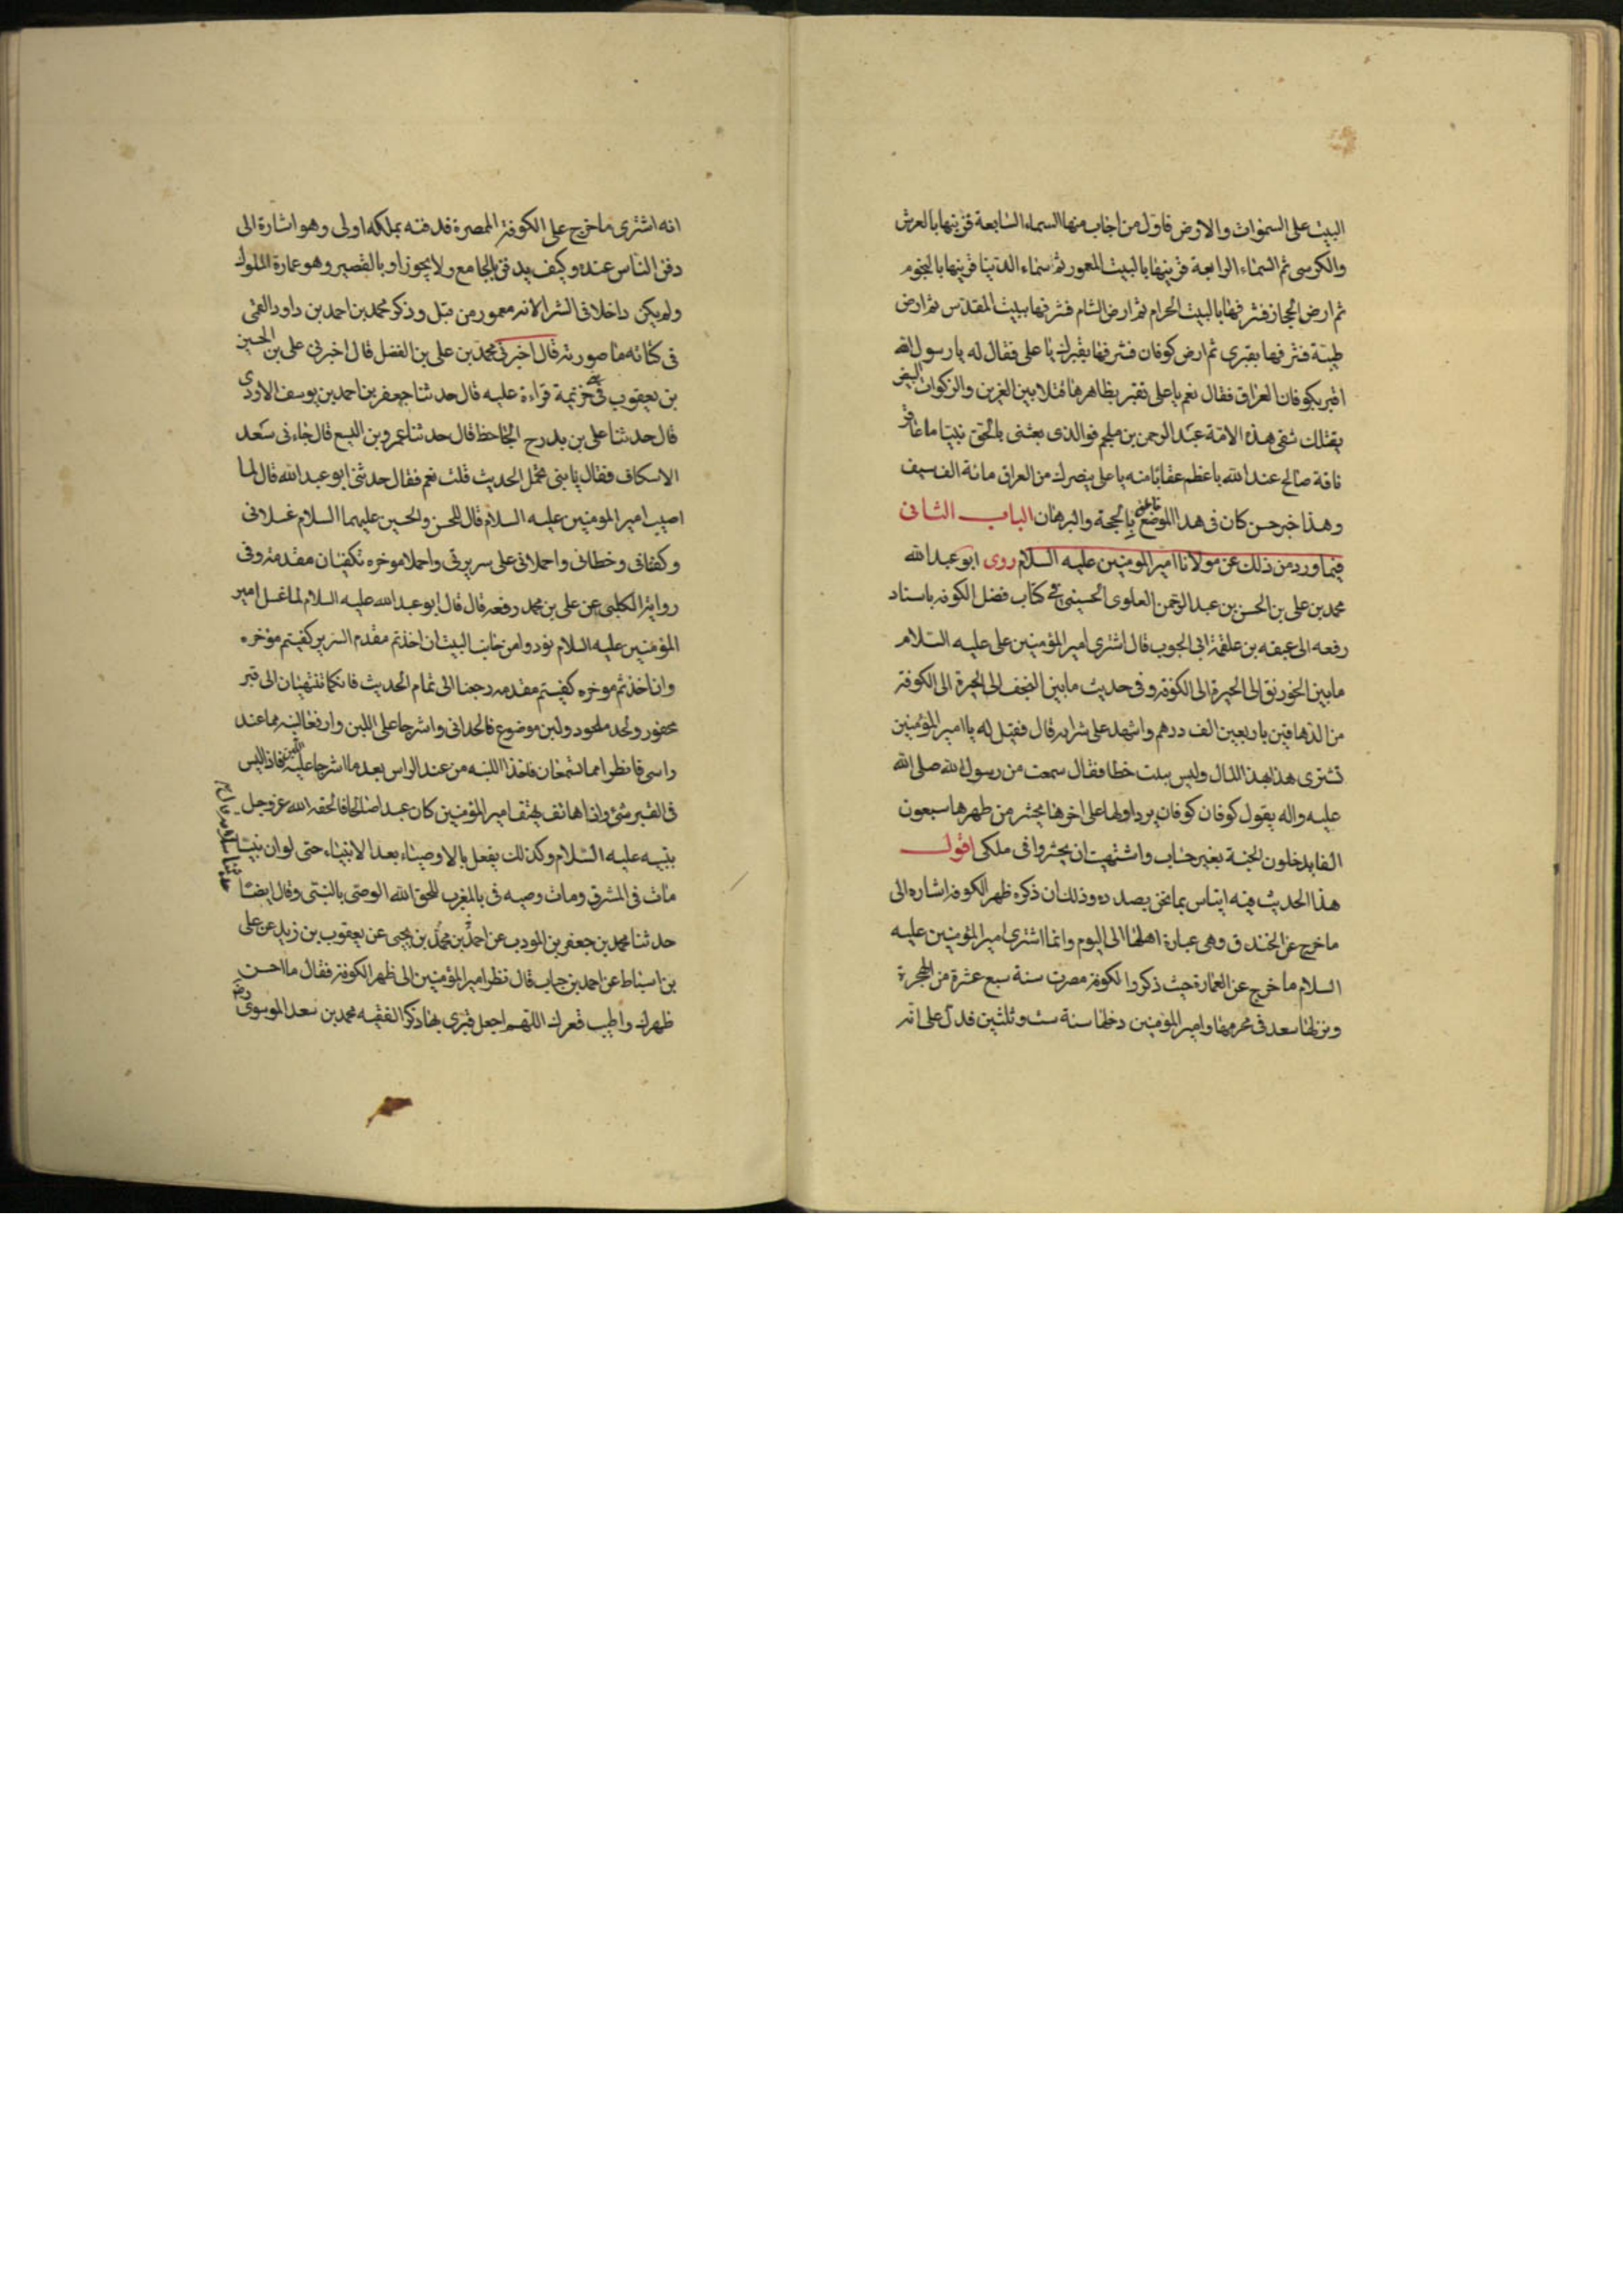 البيت على السموات والارض فاول من اجاب منها السماء السابعة فزينها بالعرش
والكرسى ثم السماء الرابعة فزينها بالبيت المعمور ثم سماء الدنيا فزينها بالنجوم
ثم ارض الحجاز فشرفها بالبيت الحرام ثم ارض الشام فشرفها ببيت المقدس ثم ارض
طيبة فشرفها بقبرى ثم ارض كوفان فشرفها بقبرك يا على فقال له يا رسول الله
اقبر بكوفان العراق فقال نعم يا على تقبر بظاهرها قتلا بين الغريين والذكوات البيض
يقتلك شقى هذه الامة عبد الرحمن بن ملجم فوالذى بعثنى بالحق نبيا ما عاقر
ناقة صالح عند الله باعظم عقابا منه يا على ينصرك من العراق مائة الف سيف
وهذا خبر حسن كان فى هذا الموضع بالحجة والبرهان الباب الثانى
فيما ورد من ذلك عن مولانا امير المومنين عليه السلام روى ابو عبد الله
محمد بن على بن الحسن بن عبد الرحمن العلوى الحسينى فى كتاب فضل الكوفه باسناد
رفعه الى عبقه بن علقمة ابى الجوب قال اشترى امير المؤمنين على عليه السلام
ما بين الخورنق الى الحيرة الى الكوفة وفى حديث ما بين النجف الى الحيرة الى الكوفة
من الدهاقين باربعين الف درهم واشهد على شرائه قال فقيل له يا امير المؤمنين
تشترى هذا بهذا المال وليس ينبت خطا فقال سمعت من رسول الله صلى الله
عليه واله يقول كوفان كوفان يرد اولها على اخرها يحشر من ظهرها سبعون
الفا يدخلون الجنة بغير حساب واشتهيت ان يحشروا فى ملكى اقول
هذا الحديث فيه ايناس بما نحن بصدده وذلك ان ذكره ظهر الكوفه اشاره الى
ما خرج عن الخندق وهى عبارة اهلها الى اليوم وانما اشترى امير المؤمنين عليه
السلام ما خرج عن العمارة حيث ذكروا الكوفة مصرت سنة سبع عشرة من الهجرة
ونزلها سعد فى محرمها وامير المؤمنين دخلها سنة ست وثلثين فدل على انه
انه اشترى ما خرج على الكوفة الممصرة فدفنه بملكه اولى وهو اشارة الى
دفن الناس عنده وكيف يدفن بالجامع ولا يجوز او بالقصر وهو عمارة الملوك
ولم يكن داخلا فى الشرا لانه معمور من قبل وذكر محمد بن احمد بن داود القمى
فى كتابه ما صورته قال اخبرنى محمد بن على بن الفضل قال اخبرنى على بن الحسين
بن يعقوب خزيمة قراءة عليه قال حدثنا جعفر بن احمد بن يوسف الاودى
قال حدثنا على بن بدرح الجاحظ قال حدثنا عمرو بن اليسع قال جاءنى سعد
الاسكاف فقال يا بنى تحمل الحديث قلت نعم فقال حدثنى ابو عبد الله قال لما
اصيب امير المومنين عليه السلام قال للحسن والحسين عليهما السلام غسلانى
وكفنانى وحنطانى واحملانى على سريرى واحملا موخره تكفيان مقدمه وفى
رواية الكلينى عن على بن محمد رفعه قال قال ابو عبد الله عليه السلام لما غسل امير
المؤمنين عليه السلام نودوا من جانب البيت ان اخذتم مقدم السرير كفيتم موخره
وان اخذتم موخره كفيتم مقدمه رجعنا الى تمام الحديث فانكما تنتهيان الى قبر
محفور ولحد ملحود ولبن موضوع فالحدانى واشرجا على اللبن وارفعا لبنه مما عند
راسى فانظرا مما تسمعان فاخذا اللبنه من عند الراس بعد ما اشرجا عليه اللبن فاذا ليس
فى القبر شئ واذا هاتف يهتف امير المؤمنين كان عبدا صالحا فالحقه الله عز وجل
بنبيه عليه السلام وكذلك يفعل بالاوصياء بعد الانبياء حتى لو ان نبيا
مات فى المشرق ومات وصيه فى بالمغرب للحق الله الوصى بالنبى وقال ايضا
حدثنا محمد بن جعفر بن المودب عن احمد بن محمد بن يحيى عن يعقوب بن زيد عن على
بن اسباط عن احمد بن حباب قال نظر امير المؤمنين الى ظهر الكوفة فقال ما احسن
ظهرك واطيب قعرك اللهم اجعل قبرى بها ذكر الفقيه محمد بن سعد الموسوى